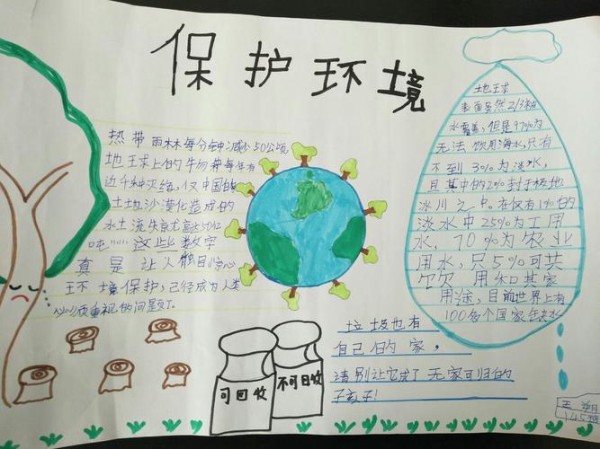 保护环境
热带雨林每分钟减少50公顷,
地球上的生物每年有
近千种灭绝,仅中国的
土地沙漠化造成的
水土流失就高达50亿
吨······这些数字
真是让人触目惊心
环境保护,已经成为人类
必须重视的问题了.
地球
表面虽然2/3被
水覆盖,但是97%为
无法饮用海水,只有
不到3%为淡水,
且其中的2%封于极地
冰川之中。在仅有1%的
淡水中25%为工用
水,70%为农业
用水,只5%可共
饮用和其家
用途,目前世界上有
100多个国家缺水
垃圾也有
自己的家,
请别让它成了无家可归的
孩子!
可回收
不可回收